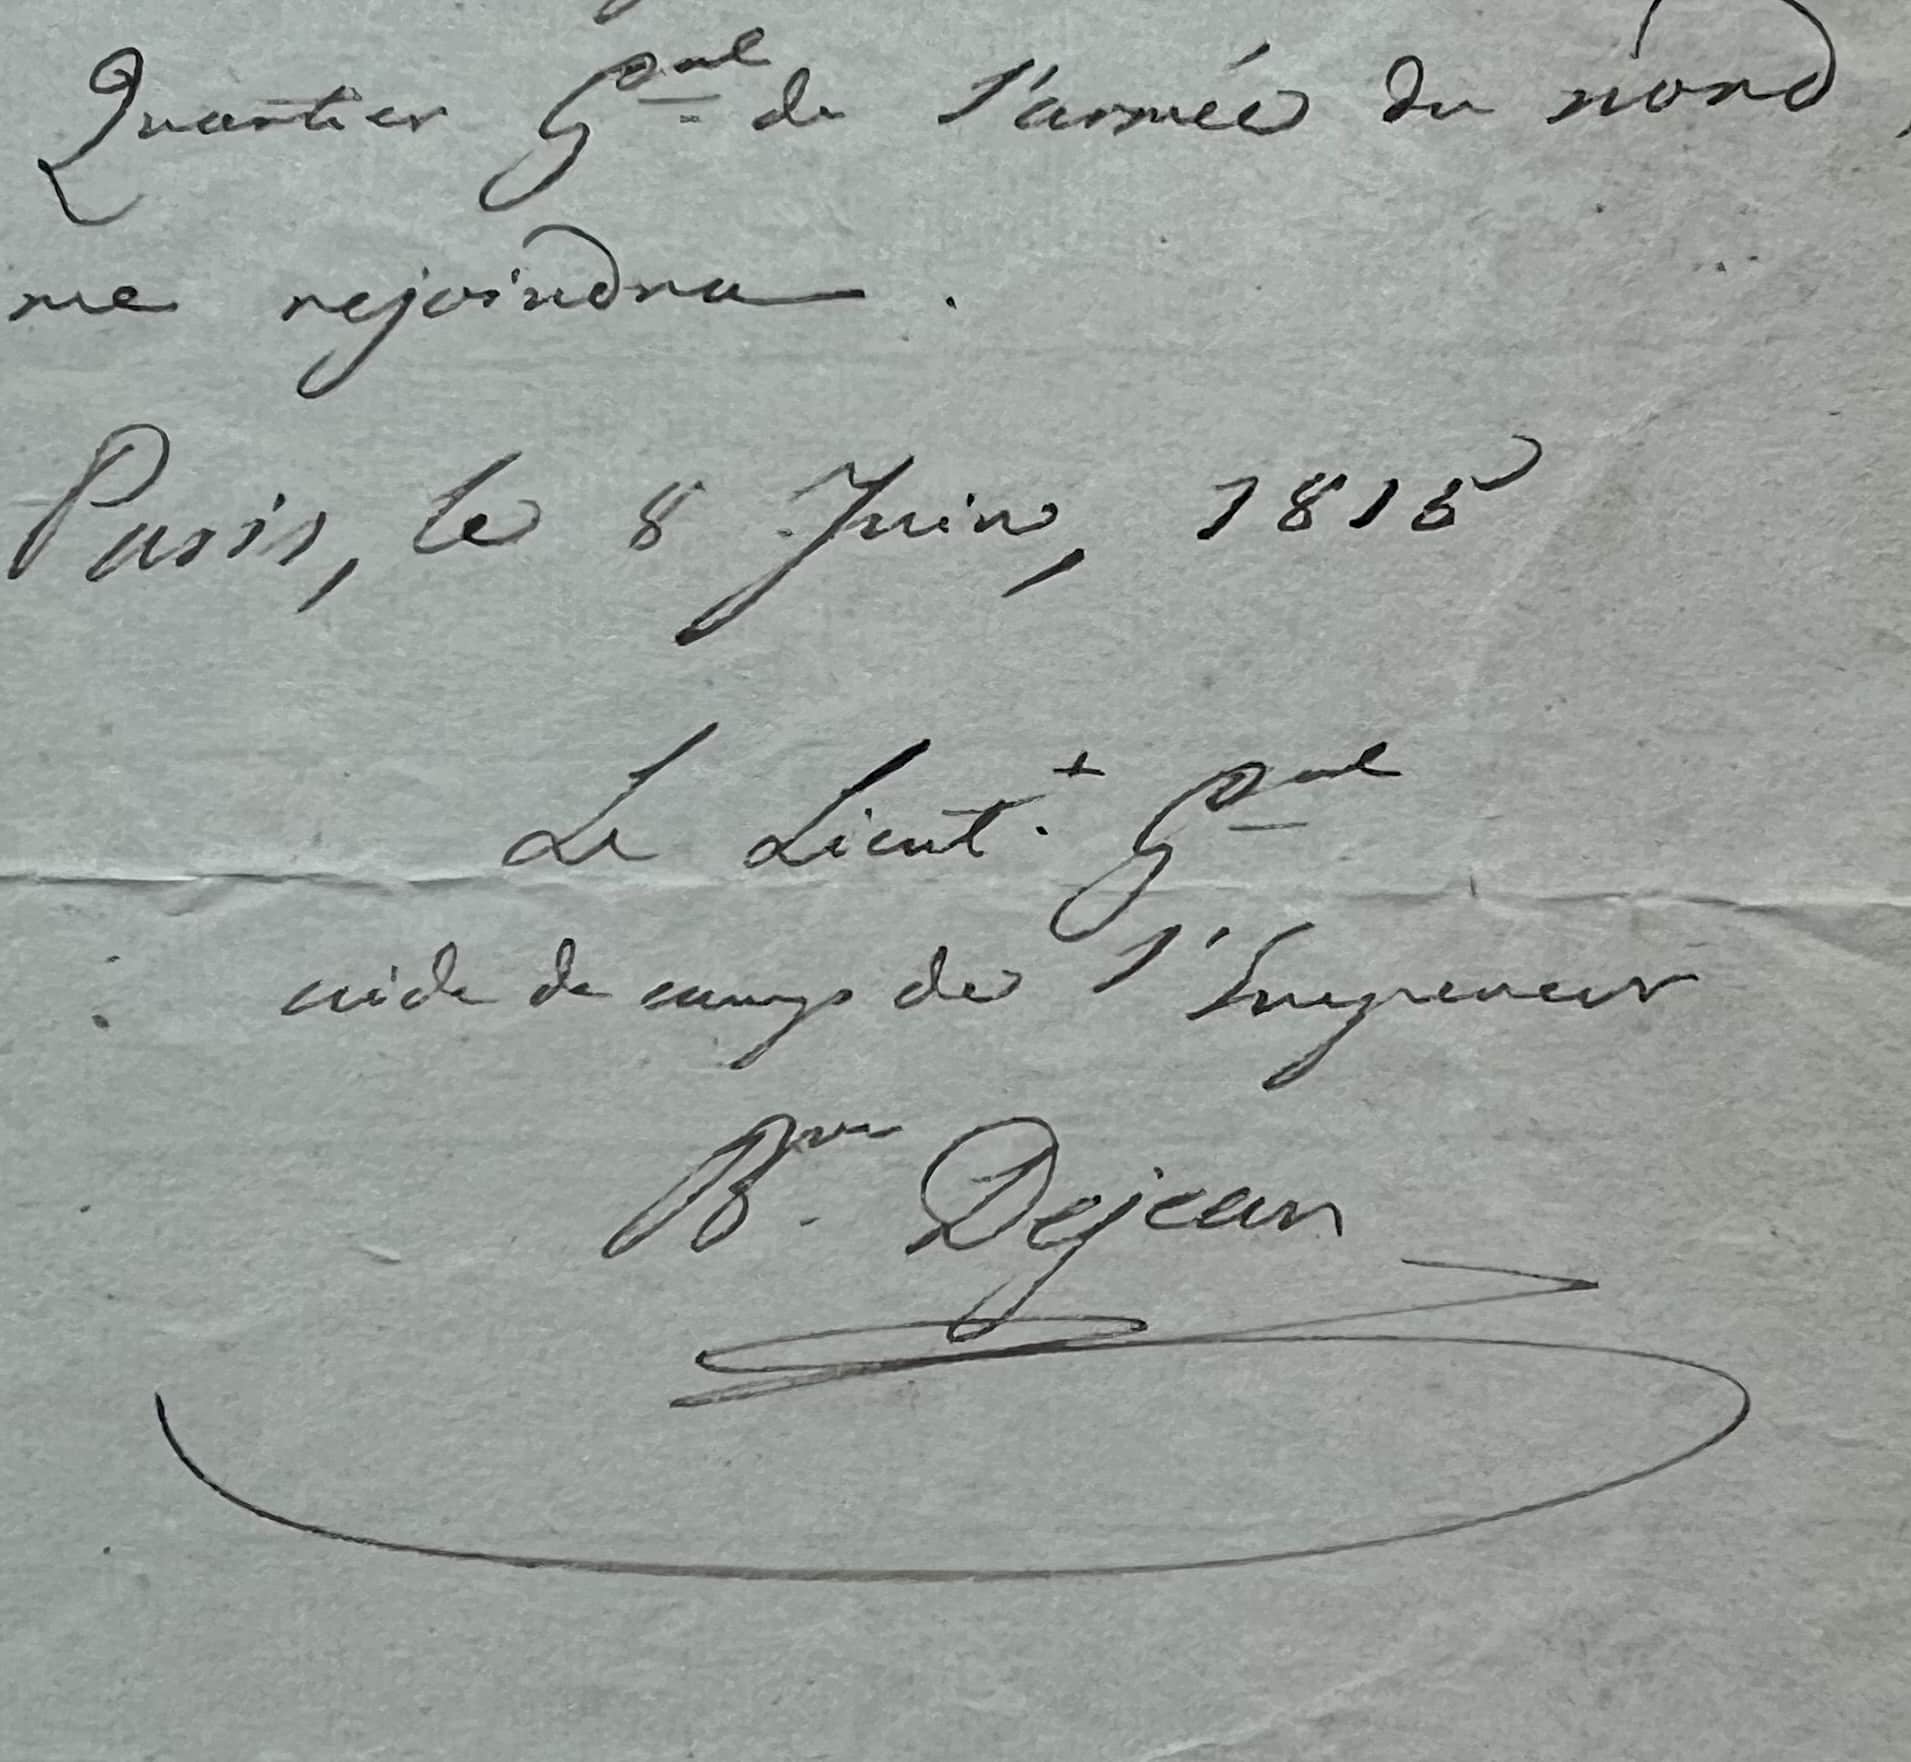 Quartier Gral de l'armée du nord,
me rejoindre.
Paris, le 8 Juin, 1815
Le Lieutt. Gal
aide de camp de l'Empereur
Bon. Dejean